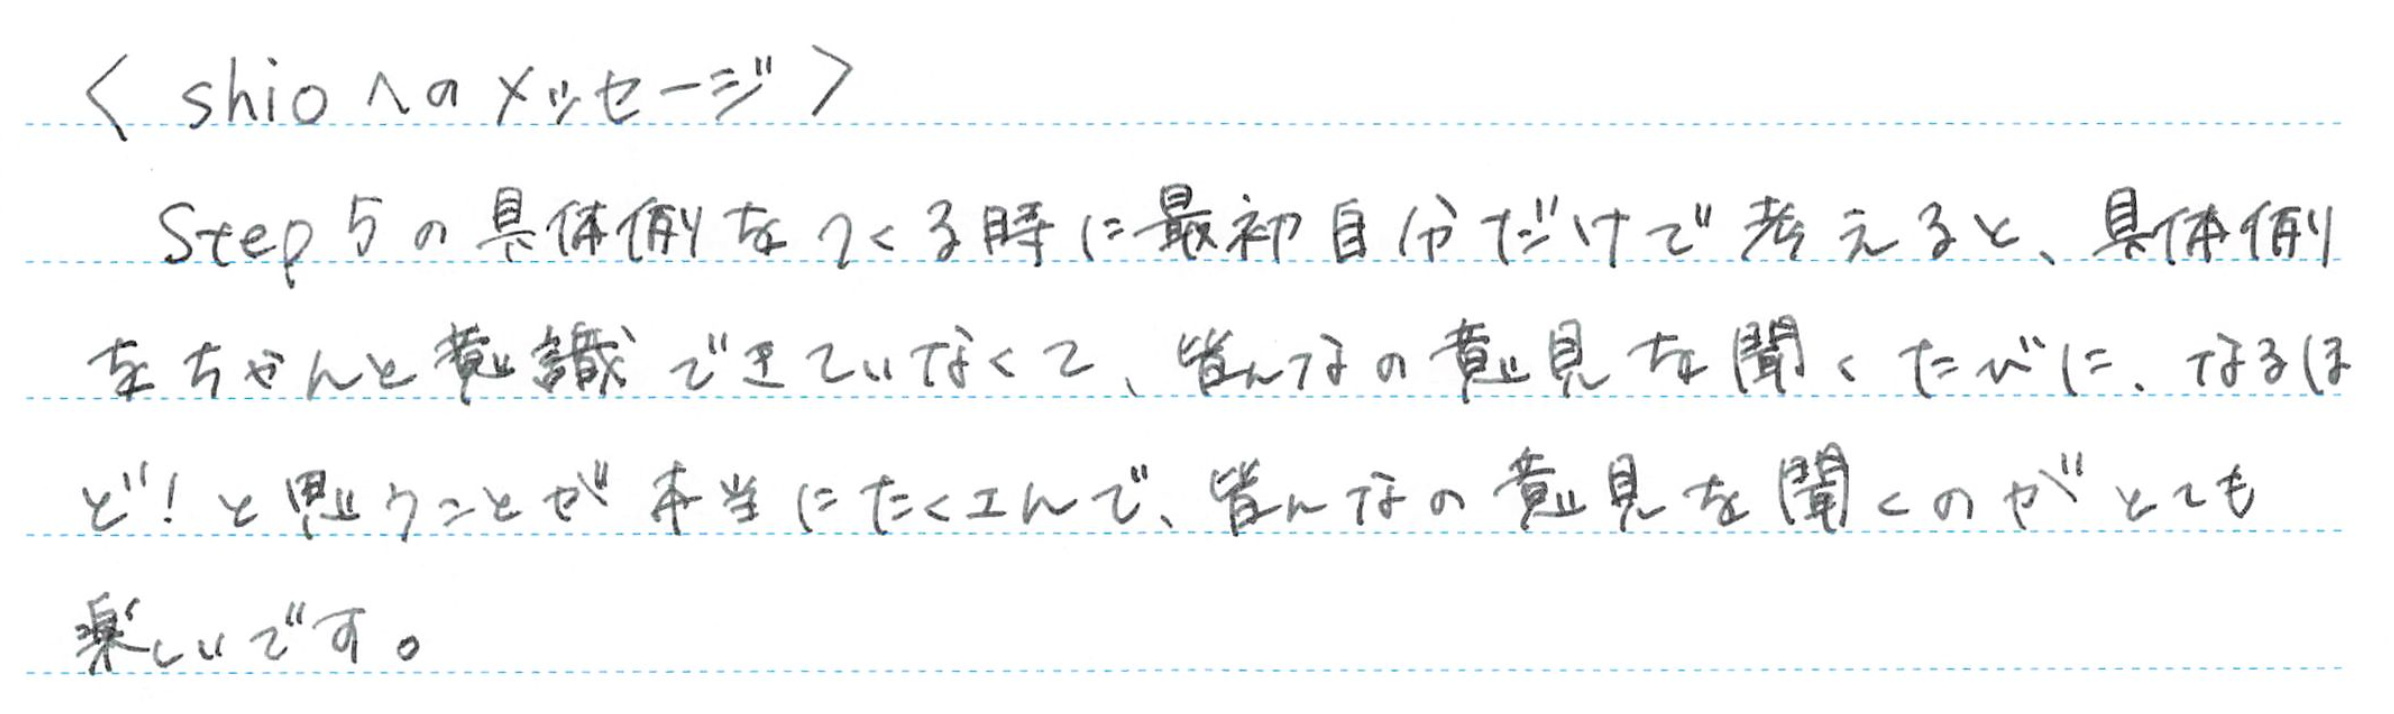 〈 shioへのメッセージ 〉
Step5の具体例をつくる時に最初自分だけで考えると、具体例
をちゃんと意識できていなくて、皆んなの意見を聞くたびに、なるほ
ど!と思うことが本当にたくさんで、皆んなの意見を聞くのがとても
楽しいです。